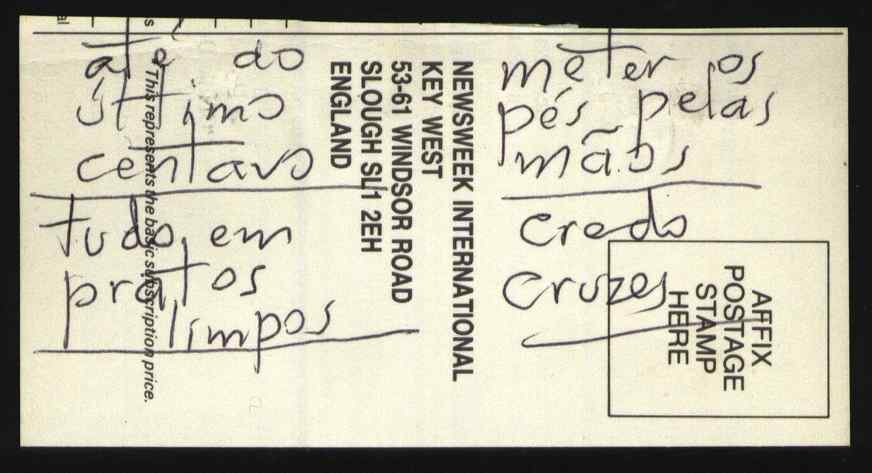 até ao
último
centavo
tudo em
pratos
limpos
meter os
pés pelas
mãos
credo
cruzes
NEWSWEEK INTERNATIONAL
KEY WEST
53-61 WINDSOR ROAD
SLOUGH SL1 2EH
ENGLAND
AFFIX
POSTAGE
STAMP
HERE
This represents the basic subscription price.